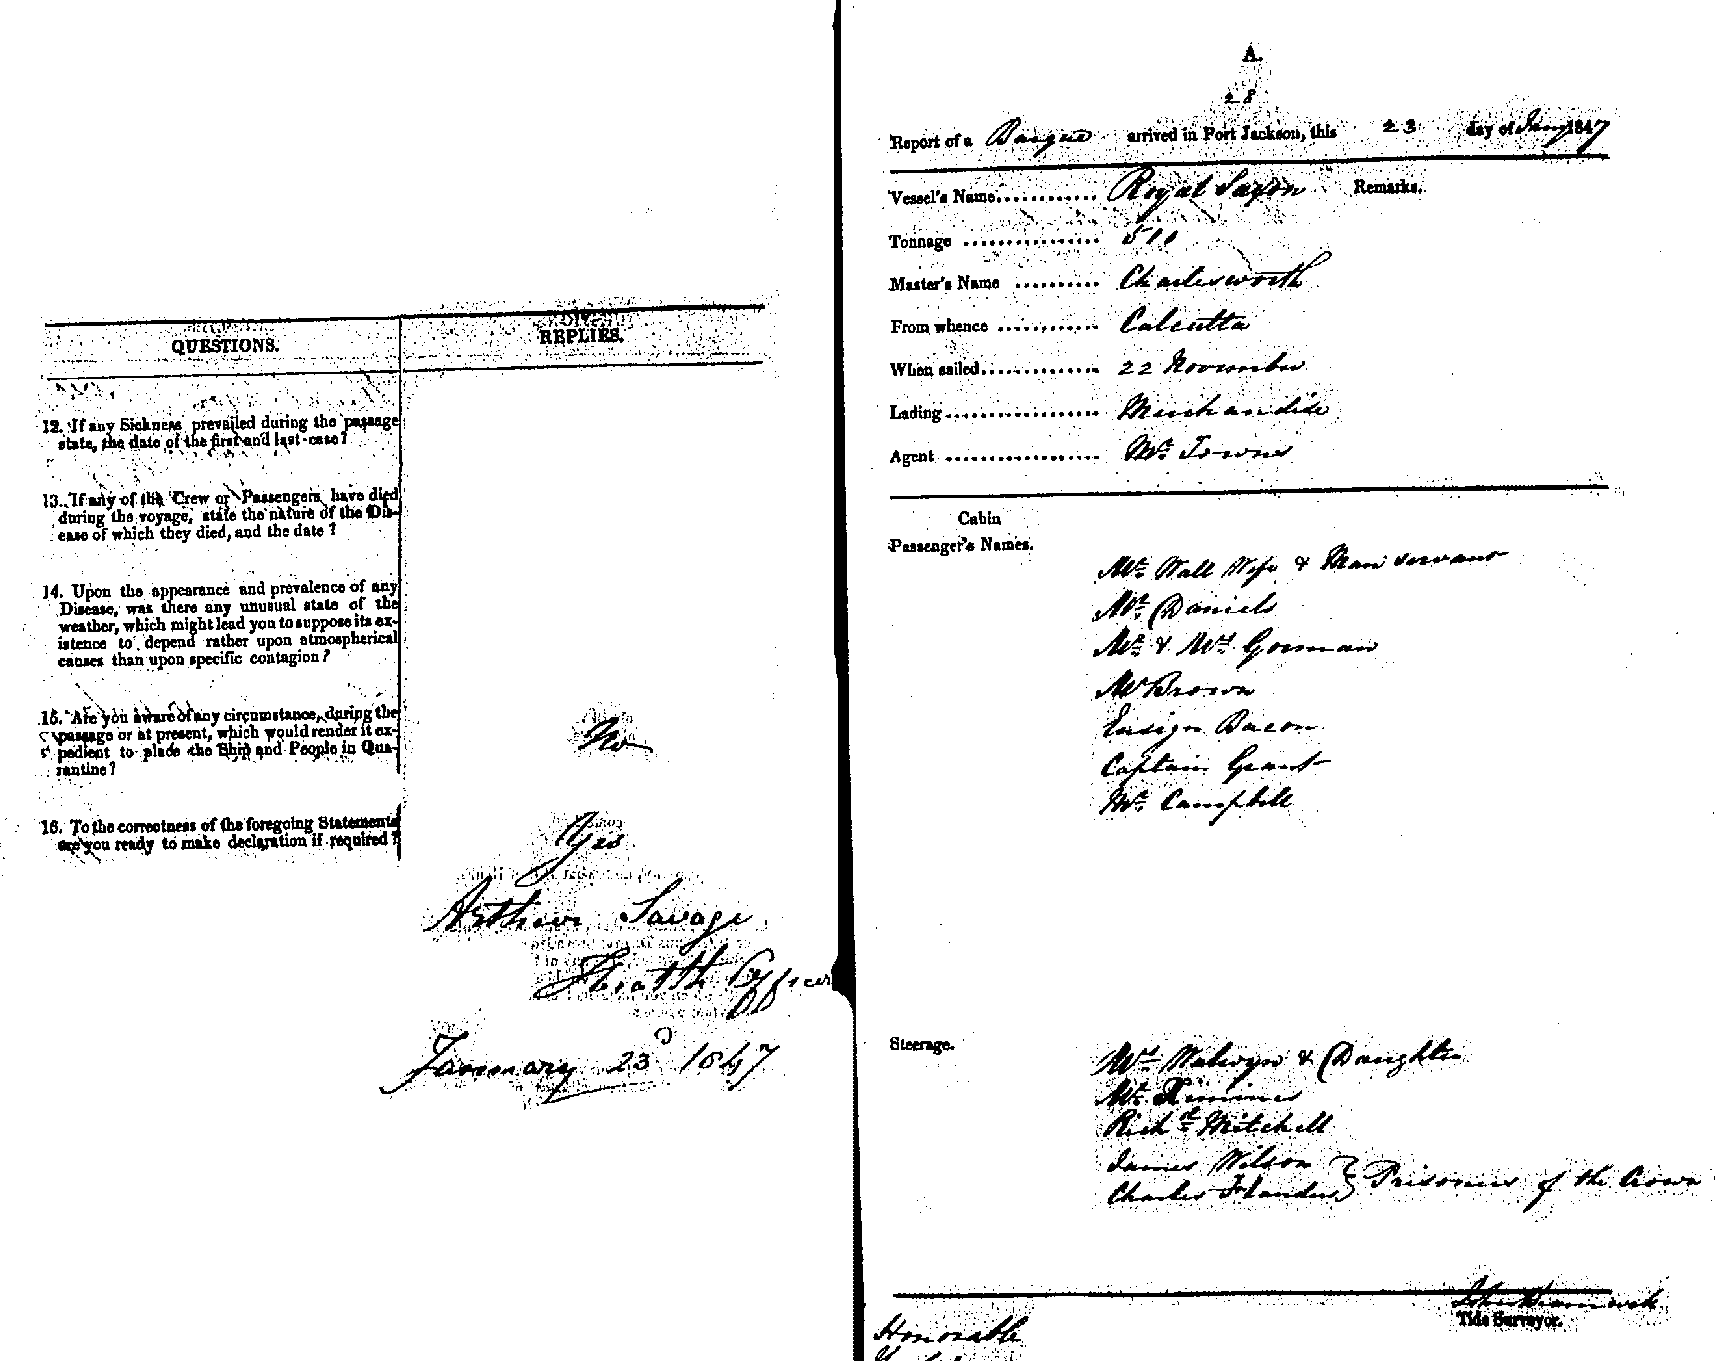 QUESTIONS.
REPLIES.
12. If any Sickness prevailed during the passage
state, the date of the first and last case?
13. If any of the Crew or Passengers have died
during the voyage, state the nature of the Dis-
ease of which they died, and the date?
14. Upon the appearance and prevalence of any
Disease, was there any unusual state of the
weather, which might lead you to suppose its ex-
istence to depend rather upon atmospherical
causes than upon specific contagion?
15. Are you aware of any circumstance, during the
passage or at present, which would render it ex-
pedient to place the Ship and People in Qua-
rantine?
No
16. To the correctness of the foregoing Statements
are you ready to make declaration if required?
Yes
Arthur Savage
Health Officer
January 23d 1847
A.
28
Report of a Barque arrived in Port Jackson, this 23 day of Jany 1847
Vessel's Name............ Royal Saxon Remarks.
Tonnage ................ 511
Master's Name .......... Charlesworth
From whence ............ Calcutta
When sailed.............. 22 November
Lading.................. Merchandise
Agent .................. Mr. Towns
Cabin
Passenger's Names.
Mr. Wall Wife & Man servant
Mr. Daniels
Mr. & Mrs. Gorman
Mr Brown
Ensign Bacon
Captain Grant
Mr. Campbell
Steerage.
Mrs. Walwyn & Daughter
Mr.
Richd. Mitchell
James Wilson
Charles Flanders } Prisoners of the Crown
John
Tide Surveyor.
Honorable